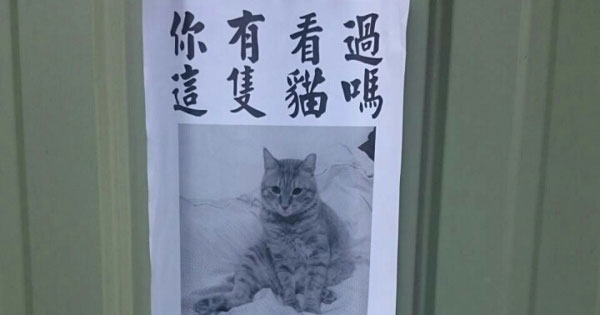 你有看過
這隻貓嗎